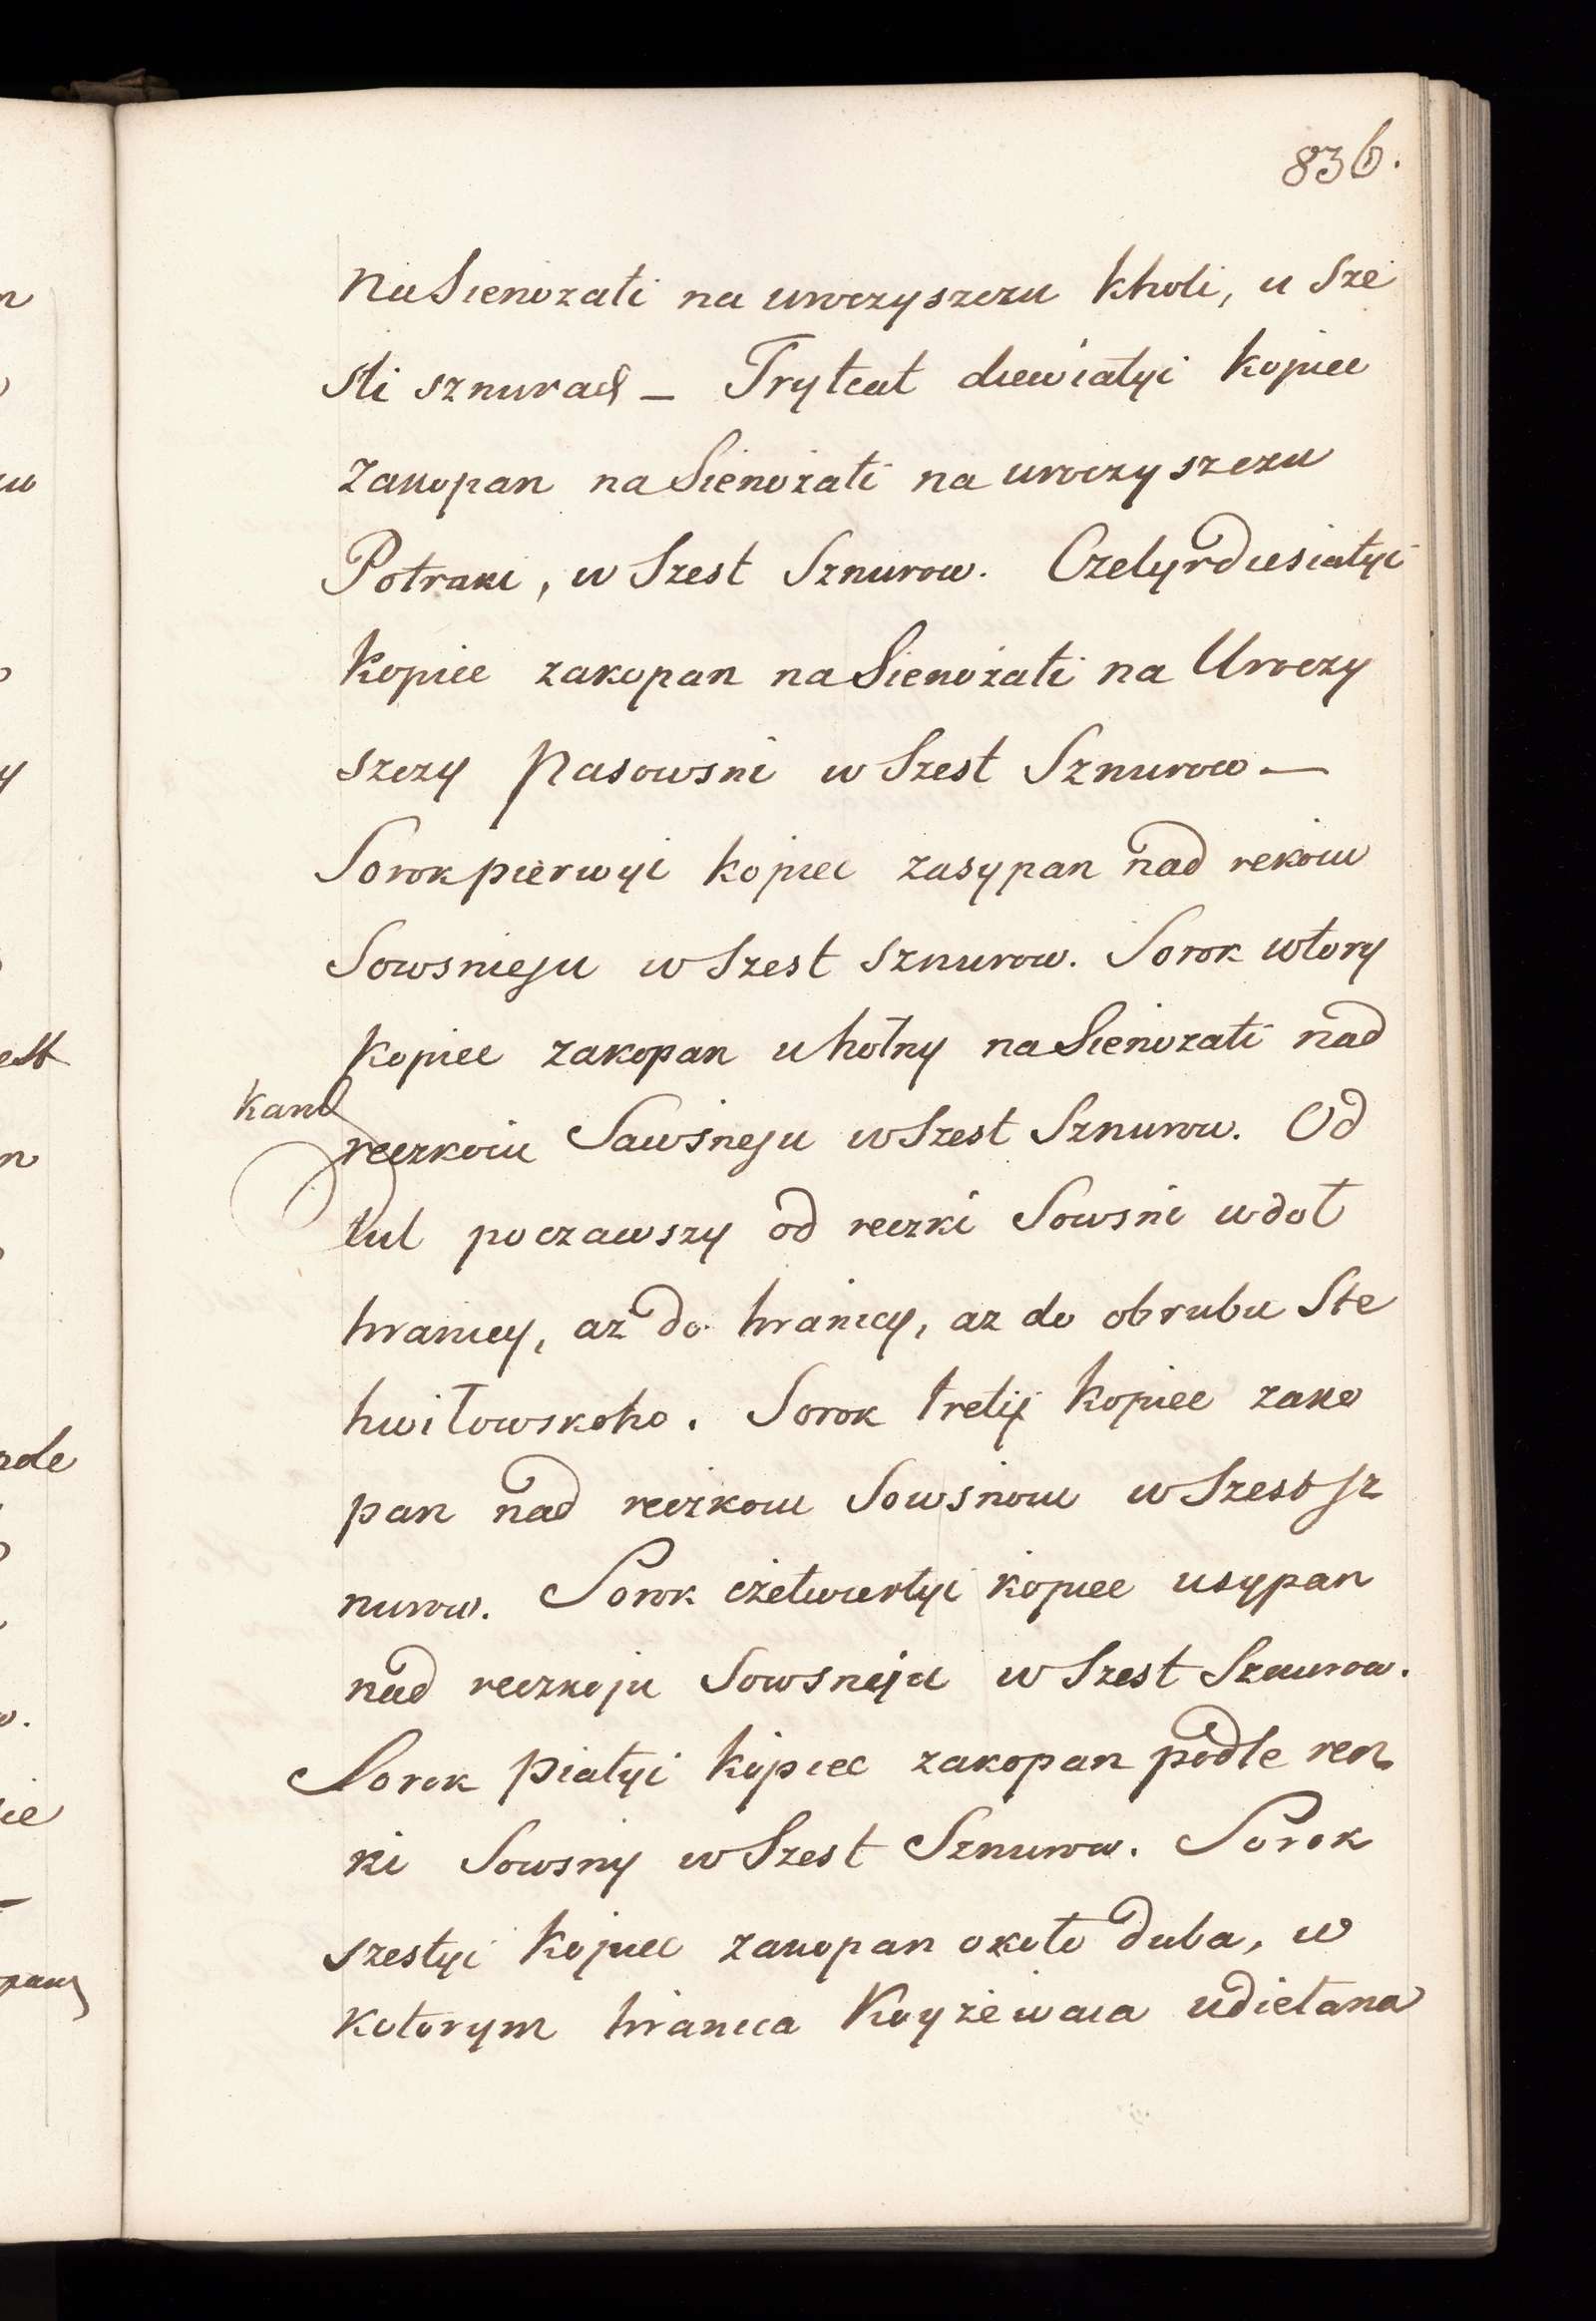 836.
na Sienozati na uroczyszczu Kholi, u Sze
sti sznurach — Trytcat dewiatyi Kopiec
Zakopan na Sienożati na uroczyszczu
Potraki, w Szest Sznurow. Czetyrdiesiatyi
kopiec zakopan na Sienożati na Uroczy
szczy Pasowsni w Szest Sznurow —
Sorok pierwyi kopiec zasypan nad rekoiu
Sowsnieju w Szest sznurow. Sorok wtory
kopiec zakopan uhołny na Sienozati nad
kant
reczkoiu Sawsneju w Szest Sznurow. Od
tul poczawszy od reczki Sowsni wdoł
hranicy, aż do hranicy, az do obrubu Ste
hwiłowskoho. Sorok tretij Kopiec zako
pan nad reczkoiu Sowsnoiu w Szest sz
nurow. Sorok czetwertyi kopiec usypan
nad reczkoju Sowsneju w Szest Sznurow.
Sorok piatyi Kopiec zakopan podle recz
ki Sowsny w Szest Sznurow. Sorok
szestyi Kopiec zakopan około duba, w
kotorym hranica Kryżewaia udiełana
n
w
y
est
n
zde
w.
ie